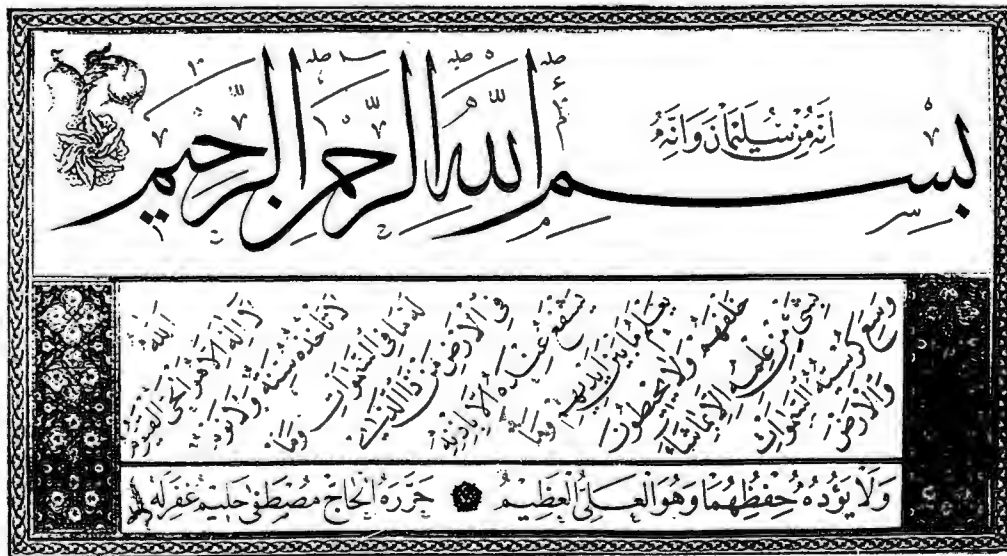 اِنَّهُ مِنْ سُلَيْمَانَ وَاِنَّهُ
بِسْمِ اللّٰهِ الرَّحْمٰنِ الرَّحِيمِ
اَللّٰهُ
لَا اِلٰهَ اِلَّا هُوَ الْحَيُّ الْقَيُّومُ
لَا تَأْخُذُهُ سِنَةٌ وَلَا نَوْمٌ
لَهُ مَا فِي السَّمٰوَاتِ وَمَا
فِي الْاَرْضِ مَنْ ذَا الَّذِي
يَشْفَعُ عِنْدَهُ اِلَّا بِاِذْنِهِ
يَعْلَمُ مَا بَيْنَ اَيْدِيهِمْ وَمَا
خَلْفَهُمْ وَلَا يُحِيطُونَ
بِشَيْءٍ مِنْ عِلْمِهِ اِلَّا بِمَا شَاءَ
وَسِعَ كُرْسِيُّهُ السَّمٰوَاتِ
وَالْاَرْضَ
وَلَا يَؤُدُهُ حِفْظُهُمَا وَهُوَ الْعَلِيُّ الْعَظِيمُ حَرَّرَهُ الْحَاجّ مُصْطَفٰى حَلِيمْ غُفِرَ لَهُ